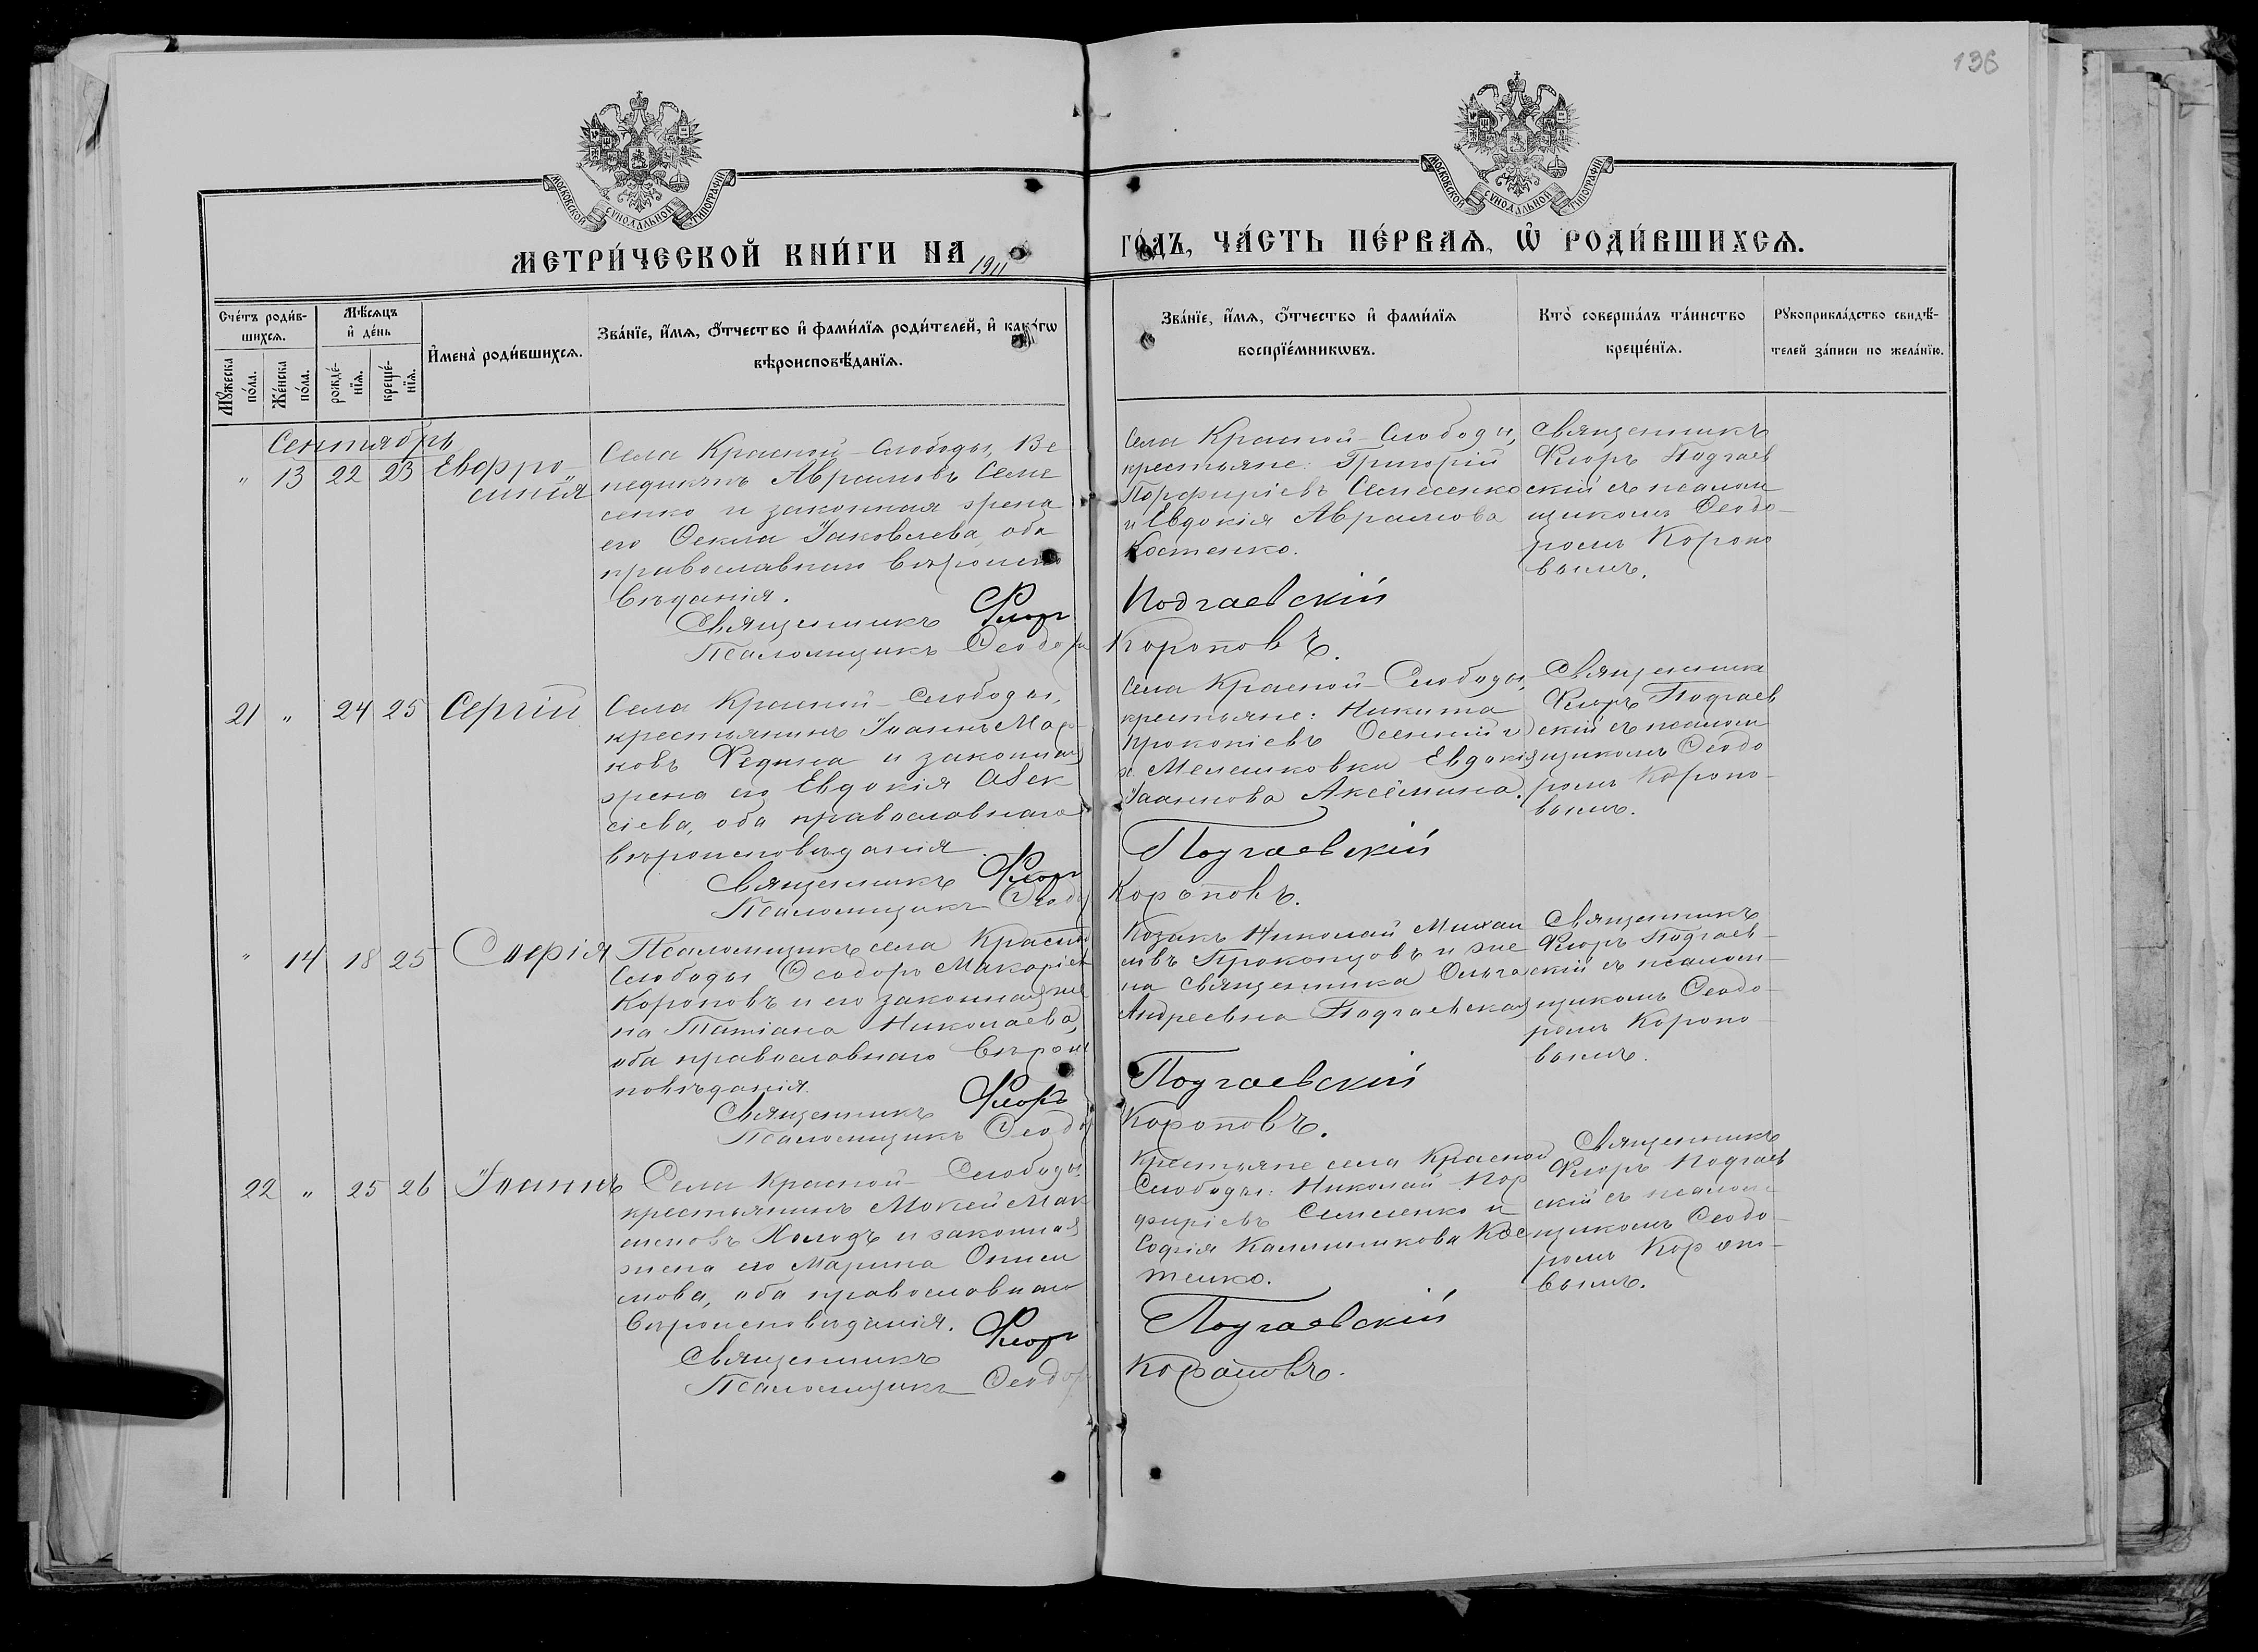 136
МОСКОВСКОЙ СѴНОДАЛЬНОЙ ТИПОГРАФІИ
МОСКОВСКОЙ СѴНОДАЛЬНОЙ ТИПОГРАФІИ
МЕТРИ́ЧЕСКОЙ КНИ́ГИ НА 1911
ГО́ДЪ, ЧА́СТЬ ПЕ́РВАѦ, Ѡ҆ РОДИ́ВШИХСѦ.
Сче́тъ роди́в-
шихсѧ.
Мꙋ́жеска
по́ла.
Же́нска
по́ла.
Мѣ́сѧцъ
и҆ де́нь
рожде́-
нїѧ.
креще́-
нїѧ.
И҆мена̀ роди́вшихсѧ.
Зва́нїе, и҆́мѧ, ѻ҆́тчество и҆ фами́лїѧ роди́телей, и҆ како́гѡ
вѣроисповѣ́данїѧ.
Зва́нїе, и҆́мѧ, ѻ҆́тчество и҆ фами́лїѧ
воспрїе́мникѡвъ.
Кто̀ соверша́лъ та́инство
креще́нїѧ.
Рꙋкоприкла́дство свидѣ́-
телей за́писи по жела́нїю.
Сентябрь
" 13 22 23 Евфро-
синія
Села Красной-Слободы,
Аврамовъ Семе
сенко и законная жена
его Іаковлева, оба
православнаго вѣроиспо
вѣданія.
Священникъ Флоръ
Псаломщикъ Ѳеодоръ
Села Красной-Слободы,
крестьяне: Григорій
Порфиріевъ Семесенко
и Евдокія Аврамова
Костенко.
Подгаевскій
Короповъ.
Священникъ
Флоръ Подгаев
скій съ псалом
щикомъ Ѳеодо-
ромъ Коропо
вымъ.
21 " 24 25 Сергій
Села Красной-Слободы,
крестьянинъ Іоаннъ Мар-
ковъ Федина и законная
жена его Евдокія Алек
сіева, оба православнаго
вѣроисповѣданія
Священникъ Флоръ
Псаломщикъ Ѳеодоръ
Села Красной-Слободы,
крестьяне: Никита
Прокопіевъ и
Евдокія
Іоаннова
Подгаевскій
Короповъ.
Священникъ
Флоръ Подгаев
скій съ псалом
щикомъ Ѳеодо
ромъ Коропо-
вымъ.
" 14 18 25 Софія
Псаломщикъ села Красной
Слободы Ѳеодоръ Макаріев
Короповъ и его законная же
на Татіана Николаева,
оба православнаго вѣроис
повѣданія.
Священникъ Флоръ
Псаломщикъ Ѳеодоръ
Козакъ Николай Михаи
ловъ Прокопцовъ и же
на священника Ольга
Андреевна Подгаевская
Подгаевскій
Короповъ.
Священникъ
Флоръ Подгаев-
скій съ псалом-
щикомъ Ѳеодо-
ромъ Коропо-
вымъ.
22 " 25 26 Іоаннъ
Села Красной-Слободы,
крестьянинъ Мокей Мак
симовъ Холодъ и законная
жена его Марина Ониси
мова, оба православнаго
вѣроисповѣданія.
Священникъ Флоръ
Псаломщикъ Ѳеодоръ
Крестьяне села Красной
Слободы: Николай Пор
фиріевъ Семесенко и
Софія Калинникова Кос
тенко.
Подгаевскій
Короповъ.
Священникъ
Флоръ Подгаев
скій съ псалом-
щикомъ Ѳеодо-
ромъ Коропо-
вымъ.